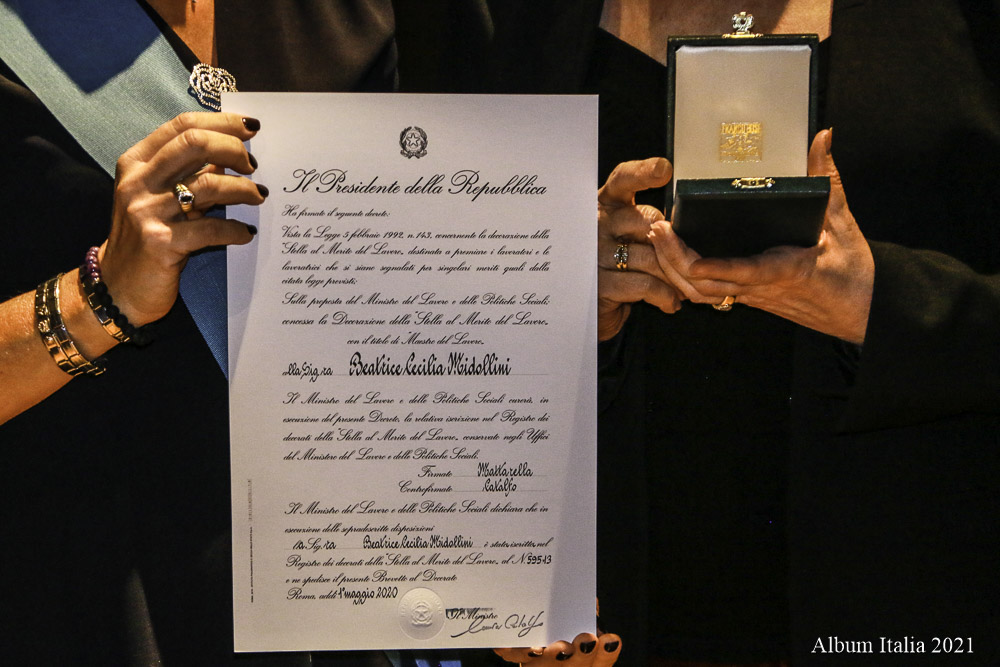 Il Presidente della Repubblica
Ha firmato il seguente decreto:
Vista la Legge 5 febbraio 1992, n. 143, concernente la decorazione della
"Stella al Merito del Lavoro", destinata a premiare i lavoratori e le
lavoratrici che si siano segnalati per singolari meriti quali dalla
citata legge previsti;
Sulla proposta del Ministro del Lavoro e delle Politiche Sociali;
concessa la Decorazione della "Stella al Merito del Lavoro"
con il titolo di "Maestro del Lavoro"
alla Sig.ra Beatrice Cecilia Midollini
Il Ministro del Lavoro e delle Politiche Sociali curerà, in
esecuzione del presente Decreto, la relativa iscrizione nel Registro dei
decorati della "Stella al Merito del Lavoro" conservato negli Uffici
del Ministero del Lavoro e delle Politiche Sociali.
Firmato Mattarella
Controfirmato Catalfo
Il Ministro del Lavoro e delle Politiche Sociali dichiara che in
esecuzione delle sopradescritte disposizioni
la Sig.ra Beatrice Cecilia Midollini è stata iscritta nel
Registro dei decorati della "Stella al Merito del Lavoro" al N. 59543
e ne spedisce il presente Brevetto al Decorato
Roma, addì 1° maggio 2020
Il Ministro
Album Italia 2021